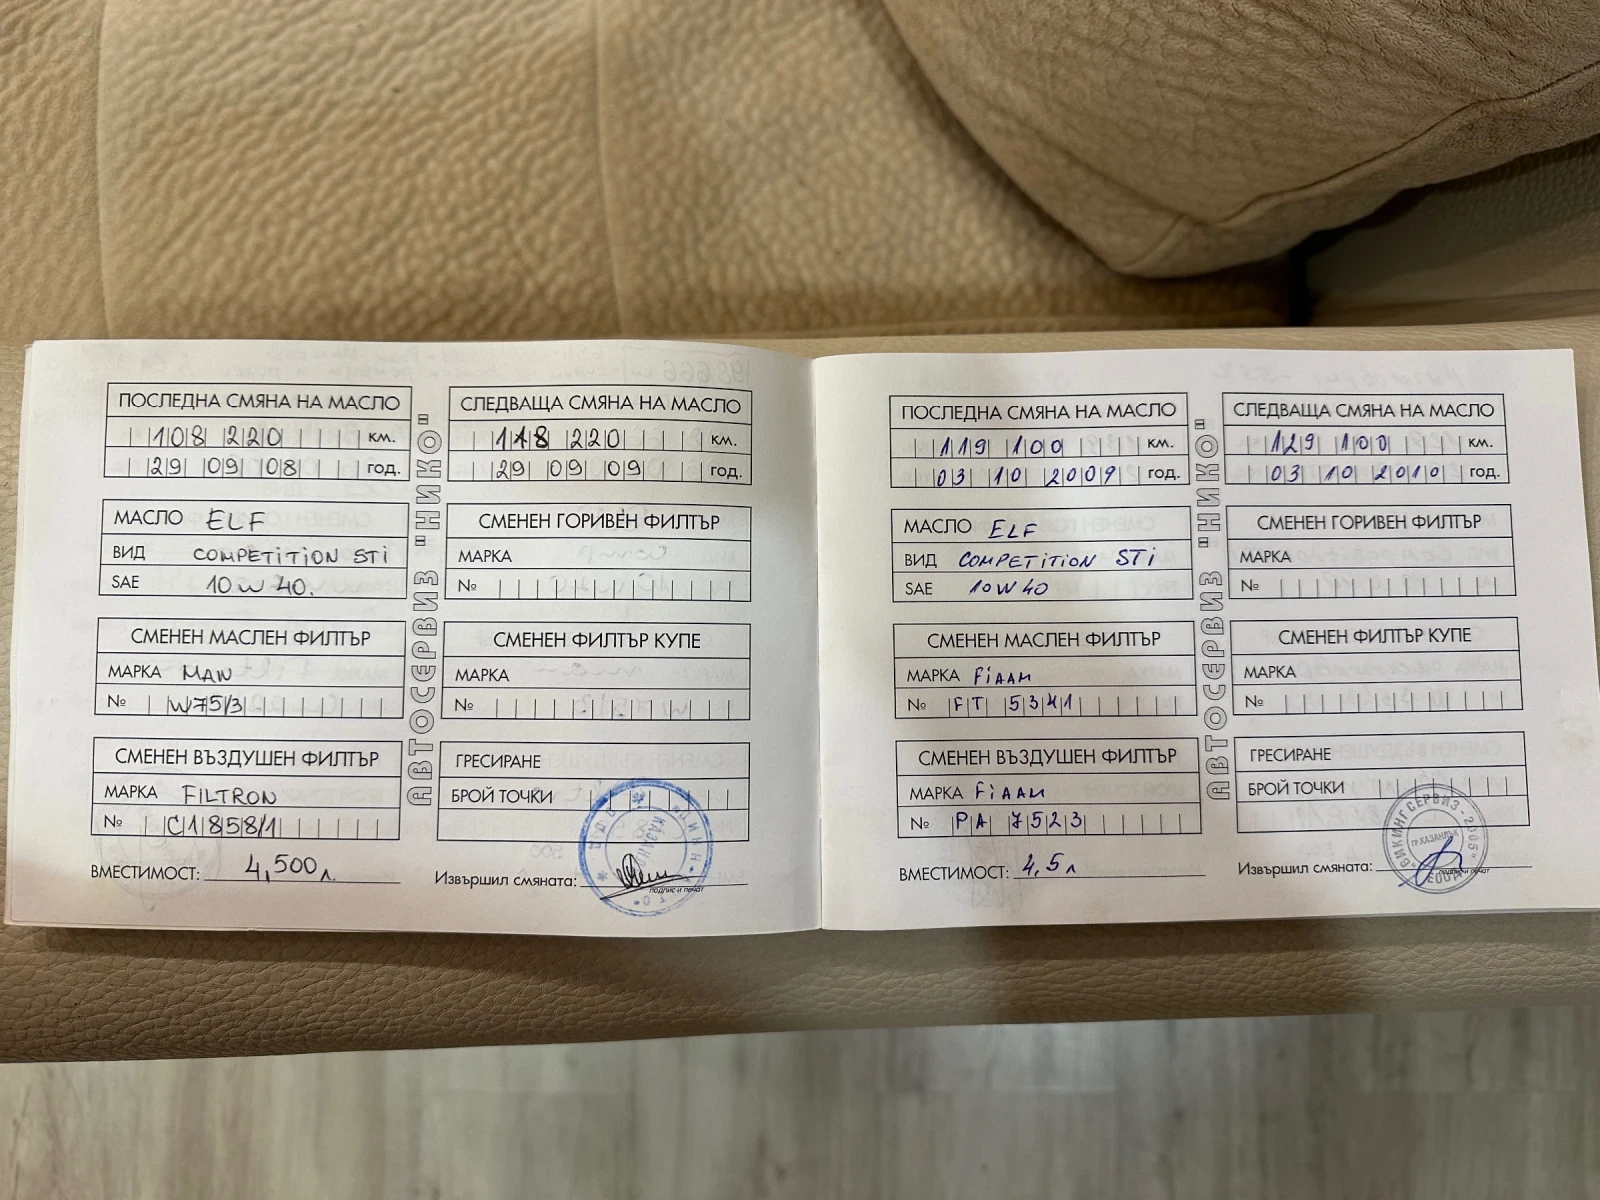 ПОСЛЕДНА СМЯНА НА МАСЛО
108 220 км.
29 09 08 год.
МАСЛО ELF
ВИД COMPETITION STi
SAE 10W40.
СМЕНЕН МАСЛЕН ФИЛТЪР
МАРКА MAN
№ W75/3
СМЕНЕН ВЪЗДУШЕН ФИЛТЪР
МАРКА FILTRON
№ C1858/1
ВМЕСТИМОСТ: 4,500 л.
АВТОСЕРВИЗ "НИКО"
СЛЕДВАЩА СМЯНА НА МАСЛО
118 220 км.
29 09 09 год.
СМЕНЕН ГОРИВЕН ФИЛТЪР
МАРКА
№
СМЕНЕН ФИЛТЪР КУПЕ
МАРКА
№
ГРЕСИРАНЕ
БРОЙ ТОЧКИ
Извършил смяната:
подпис и печат
ПОСЛЕДНА СМЯНА НА МАСЛО
119 100 км.
03 10 2009 год.
МАСЛО ELF
ВИД COMPETITION STi
SAE 10W40
СМЕНЕН МАСЛЕН ФИЛТЪР
МАРКА FiAAM
№ FT 5341
СМЕНЕН ВЪЗДУШЕН ФИЛТЪР
МАРКА FiAAM
№ PA 7523
ВМЕСТИМОСТ: 4,5 л
АВТОСЕРВИЗ "НИКО"
СЛЕДВАЩА СМЯНА НА МАСЛО
129 100 км.
03 10 2010 год.
СМЕНЕН ГОРИВЕН ФИЛТЪР
МАРКА
№
СМЕНЕН ФИЛТЪР КУПЕ
МАРКА
№
ГРЕСИРАНЕ
БРОЙ ТОЧКИ
"ВИКИНГ СЕРВИЗ-2005" ЕООД
ГР. КАЗАНЛЪК
Извършил смяната:
подпис и печат